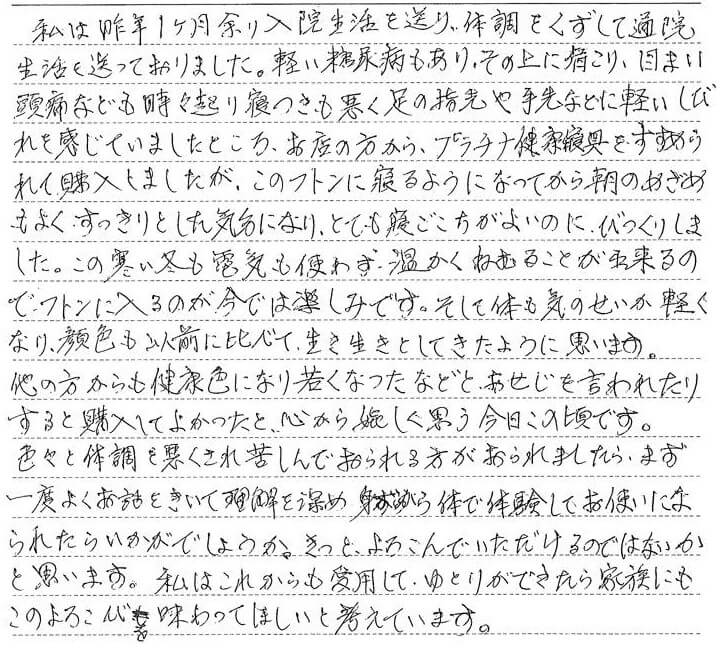 私は昨年1ヶ月余り入院生活を送り、体調をくずして通院
生活を送っておりました。軽い糖尿病もあり、その上に肩こり、目まい
頭痛なども時々起り寝つきも悪く足の指先や手先などに軽いしび
れを感じていましたところ、お店の方から、プラチナ健康寝具をすすめら
れて購入しましたが、このフトンに寝るようになってから朝のめざめ
もよく、すっきりとした気分になり、とても寝ごこちがよいのに、びっくりしま
した。この寒い冬も電気も使わず、温かくねむることが出来るの
で、フトンに入るのが今では楽しみです。そして体も気のせいか軽く
なり、顔色も以前に比べて、生き生きとしてきたように思います。
他の方からも健康色になり若くなったなどと、おせじを言われたり
すると購入してよかったと、心から嬉しく思う今日この頃です。
色々と体調を悪くされ苦しんでおられる方がおられましたら、まず
一度よくお話をきいて理解を深め 身から体で体験してお使いにな
られたらいかがでしょうか。きっと、よろこんでいただけるのではないか
と思います。私はこれからも愛用して、ゆとりができたら家族にも
このよろこびを味わってほしいと考えています。